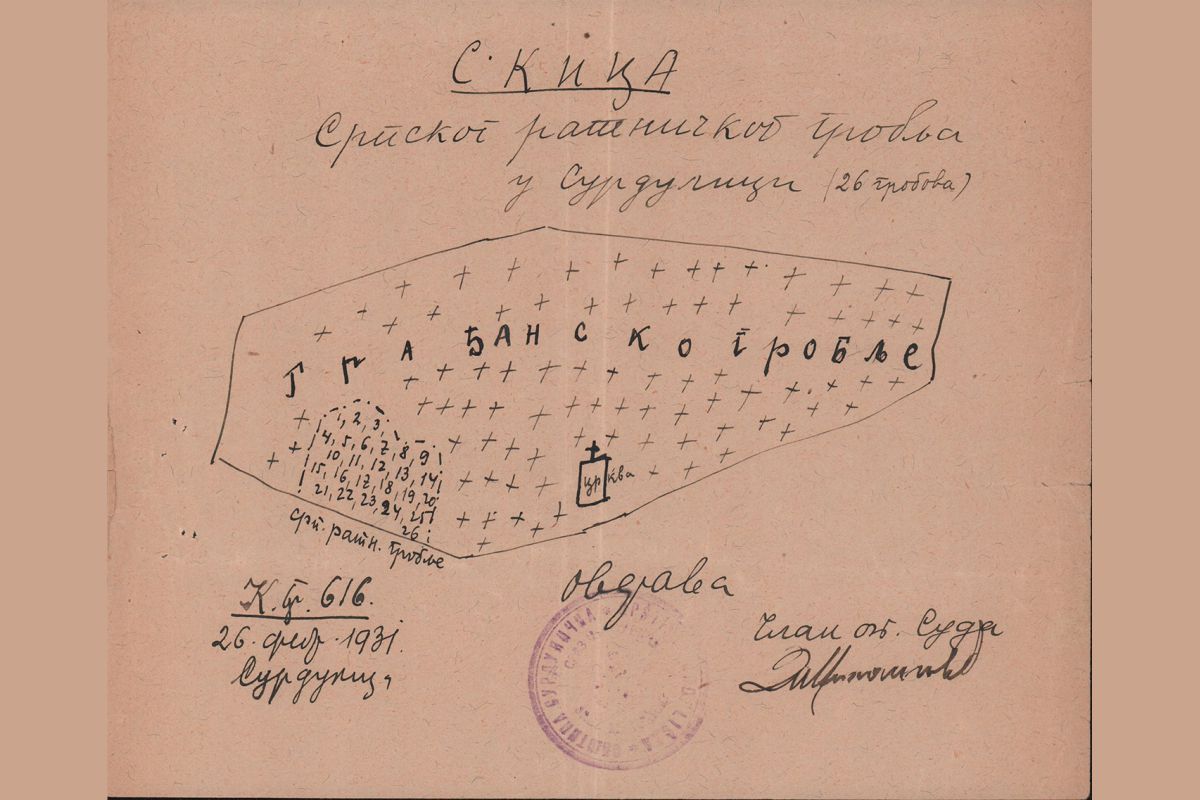 СКИЦА
Српског ратничког гробља
у Сурдулици (26 гробова)
ГРАЂАНСКО ГРОБЉЕ
1, 2, 3,
4, 5, 6, 7, 8, 9
10, 11, 12, 13, 14
15, 16, 17, 18, 19, 20
21, 22, 23, 24, 25
26
црква
срп. ратн. гробље
К.бр. 616.
26. феб. 1931.
Сурдулица
Оверава
Члан оп. Суда
ОПШТИНА СУРДУЛИЧКА